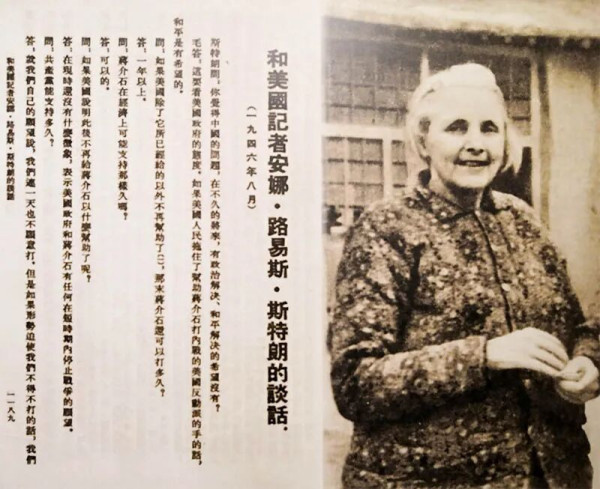 和美國記者安娜·路易斯·斯特朗的談話·
（一九四六年八月）
斯特朗問：你覺得中國的問題，在不久的將來，有政治解決、和平解決的希望沒有？
毛答：這要看美國政府的態度。如果美國人民拖住了幫助蔣介石打內戰的美國反動派的手的話，
和平是有希望的。
問：如果美國除了它所已經給的以外不再幫助了〔一〕，那末蔣介石還可以打多久？
答：一年以上。
問：蔣介石在經濟上可能支持那樣久嗎？
答：可以的。
問：如果美國說明此後不再給蔣介石以什麼幫助了呢？
答：在現時還沒有什麼徵象，表示美國政府和蔣介石有任何在短時期內停止戰爭的願望。
問：共產黨能支持多久？
答：就我們自己的願望說，我們連一天也不願意打。但是如果形勢迫使我們不得不打的話，我們
和美國記者安娜·路易斯·斯特朗的談話
一一八九